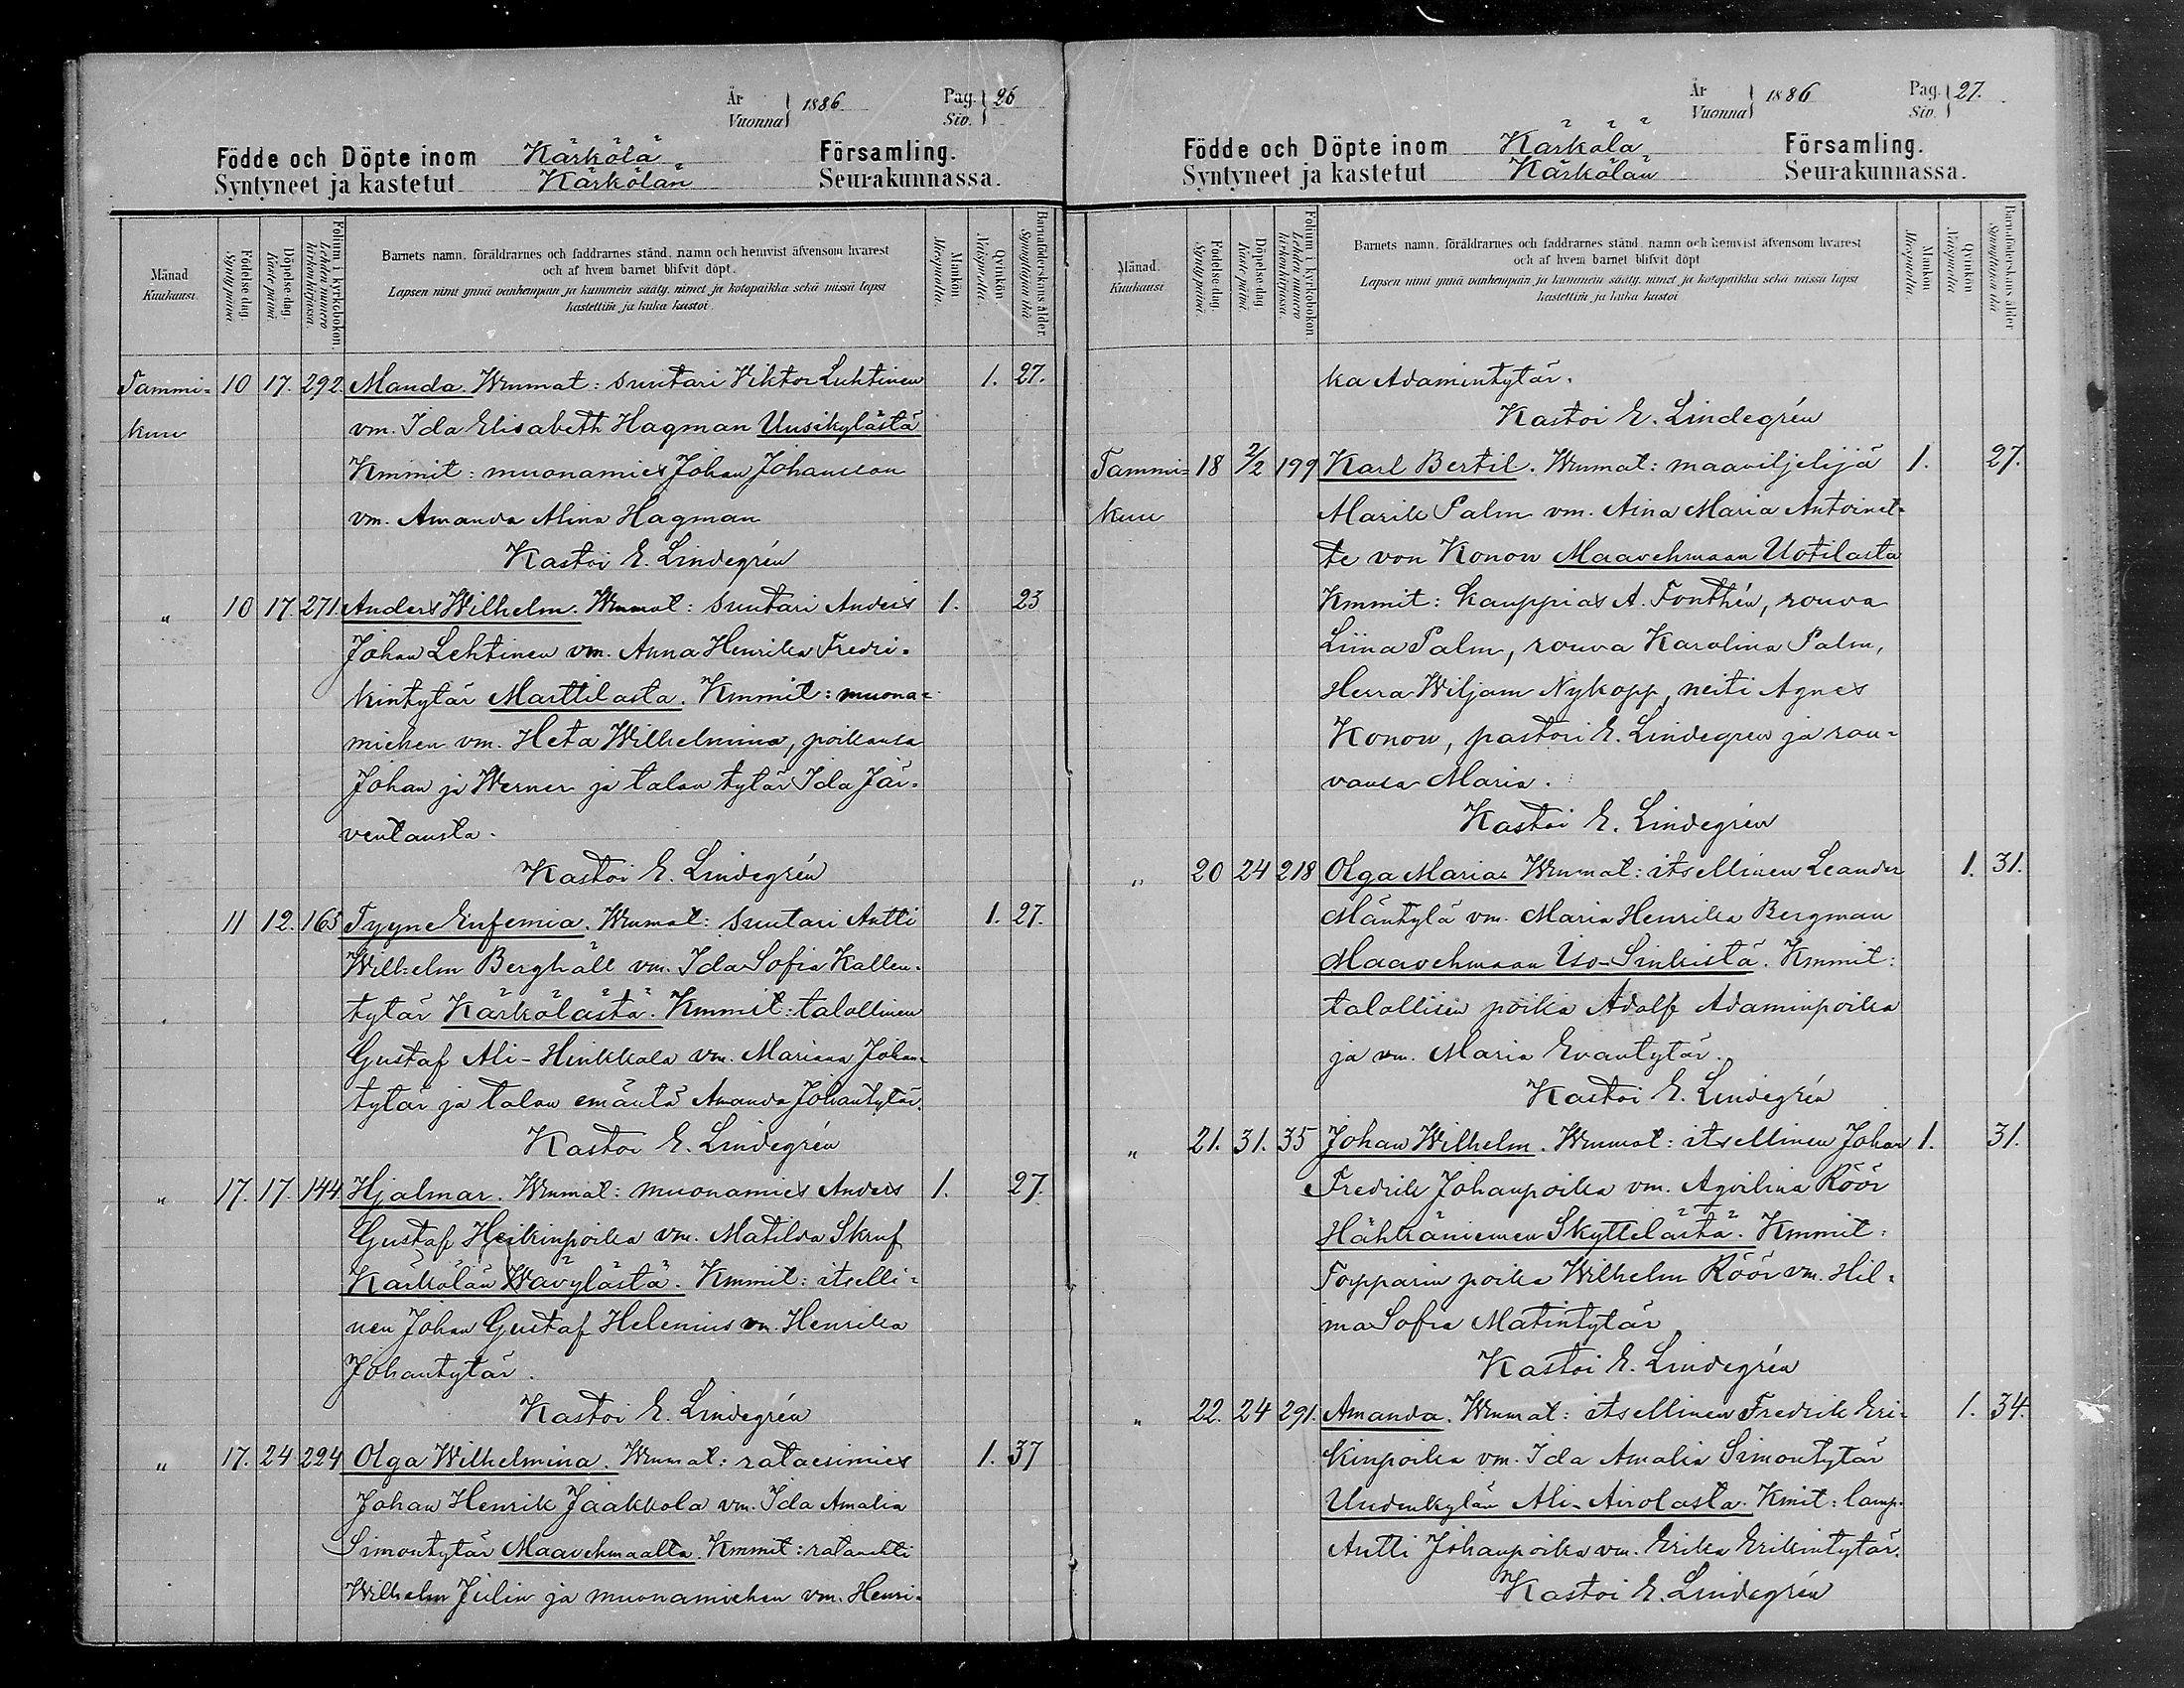 År
Vuonna } 1886 Pag. Siv. } 26
Födde och Döpte inom Kärkölä Församling.
Syntyneet ja kastetut Kärkölän Seurakunnassa.
Månad Kuukausi.
Födelse-dag. Syntypäivä
Döpelse-dag. Kaste päivä
Folium i kyrkoboken. Lehden numero kirkonkirjassa.
Barnets namn, föräldrarnes och faddrarnes stånd, namn och hemvist äfvensom hvarest
och af hvem barnet blifvit döpt.
Lapsen nimi ynnä vanhempain ja kummein sääty, nimet ja kotopaikka sekä missä lapsi
kastettiin ja kuka kastoi.
Mankön Miespuolia.
Qvinkön Naispuolia.
Barnaföderskans ålder Synnyttäjän ikä
Tammi- 10 17. 292. Manda Wnmat: suutari Viktor Luhtinen 1. 27.
kuu vm. Ida Elisabeth Hagman Uusikylästä
Kmmit: muonamies Johan Johansson
vm. Amanda Alina Hagman
Kastoi E. Lindegrén
" 10 17. 271. Anders Wilhelm. Wnmat: suutari Anders 1. 23
Johan Lehtinen vm. Anna Henrika Fredri-
kintytär Marttilasta. Kmmit: muona-
miehen vm. Heta Wilhelmina, poikansa
Johan ja Werner ja talon tytär Ida Jär-
ventausta.
Kastoi E. Lindegrén
11 12. 165 Tyyne Eufemia. Wnmat: suutari Antti 1. 27.
Wilhelm Berghäll vm. Ida Sofia Kallen-
tytär Kärkölästä. Kmmit: talollinen
Gustaf Ali-Hinkkala vm. Mariana Johan-
tytär ja talon emäntä Amanda Johantytär.
Kastoi E. Lindegrén
" 17. 17. 144 Hjalmar. Wnmat: muonamies Anders 1. 27.
Gustaf Heikinpoika vm. Matilda Skruf
Kärkölän Wävylästä. Kmmit: itselli-
nen Johan Gustaf Helenius vm. Henrika
Johantytär.
Kastoi E. Lindegrén
" 17. 24 224 Olga Wilhelmina. Wnmat: rataesimies 1. 37
Johan Henrik Jaakkola vm. Ida Amalia
Simontytär Maavehmaalta. Kmmit: ratavahti
Wilhelm Julin ja muonamiehen vm. Henri-
År
Vuonna } 1886 Pag. Siv. } 27.
Födde och Döpte inom Kärkälä Församling.
Syntyneet ja kastetut Kärkölän Seurakunnassa.
Månad. Kuukausi
Födelse-dag. Syntypäivä.
Döpelse-dag. Kaste päivä
Folium i kyrkoboken Lehden numero kirkonkirjassa.
Barnets namn, föräldrarnes och faddrarnes stånd, namn och hemvist äfvensom hvarest
och af hvem barnet blifvit döpt
Lapsen nimi ynnä vanhempain ja kummein sääty, nimet ja kotopaikka sekä missä lapsi
kastettiin ja kuka kastoi
Mankön Miespuolia.
Qvinkön Naispuolia
Barnaföderskans ålder Synnyttäjän ikä
ka Adamintytär.
Kastoi E. Lindegrén
Tammi- 18 2/2 199 Karl Bertil. Wnmat: maaviljelijä 1. 27.
kuu Marik Palm vm. Aina Maria Antoinet-
te von Konow Maavehmaan Uotilasta
Kmmit: Kauppias A. Fonthén, rouva
Liina Palm, rouva Karolina Palm,
Herra Wiljam Nykopp, neiti Agnes
Konow, pastori E. Lindegren ja rou-
vansa Maria.
Kastoi E. Lindegrén
" 20 24 218 Olga Maria. Wnmat: itsellinen Leander 1. 31.
Mäntylä vm. Maria Henrika Bergman
Maavehmaan Iso-Sinkistä. Kmmit:
talollisen poika Adolf Adaminpoika
ja vm. Maria Evantytär.
Kastoi E. Lindegrén
" 21. 31. 35 Johan Wilhelm. Wnmat: itsellinen Johan 1. 31.
Fredrik Johanpoika vm. Agvilina Röör
Hähkäniemen Skyttelästä. Kmmit:
Torpparin poika Wilhelm Röör vm. Hil-
ma Sofia Matintytär
Kastoi E. Lindegrén
" 22. 24 291. Amanda. Wnmat: itsellinen Fredrik Eri- 1. 34.
kinpoika vm. Ida Amalia Simontytär
Uudenkylän Ali-Airolasta. Kmit: lamp.
Antti Johanpoika vm. Erika Erikintytär.
Kastoi E. Lindegrén